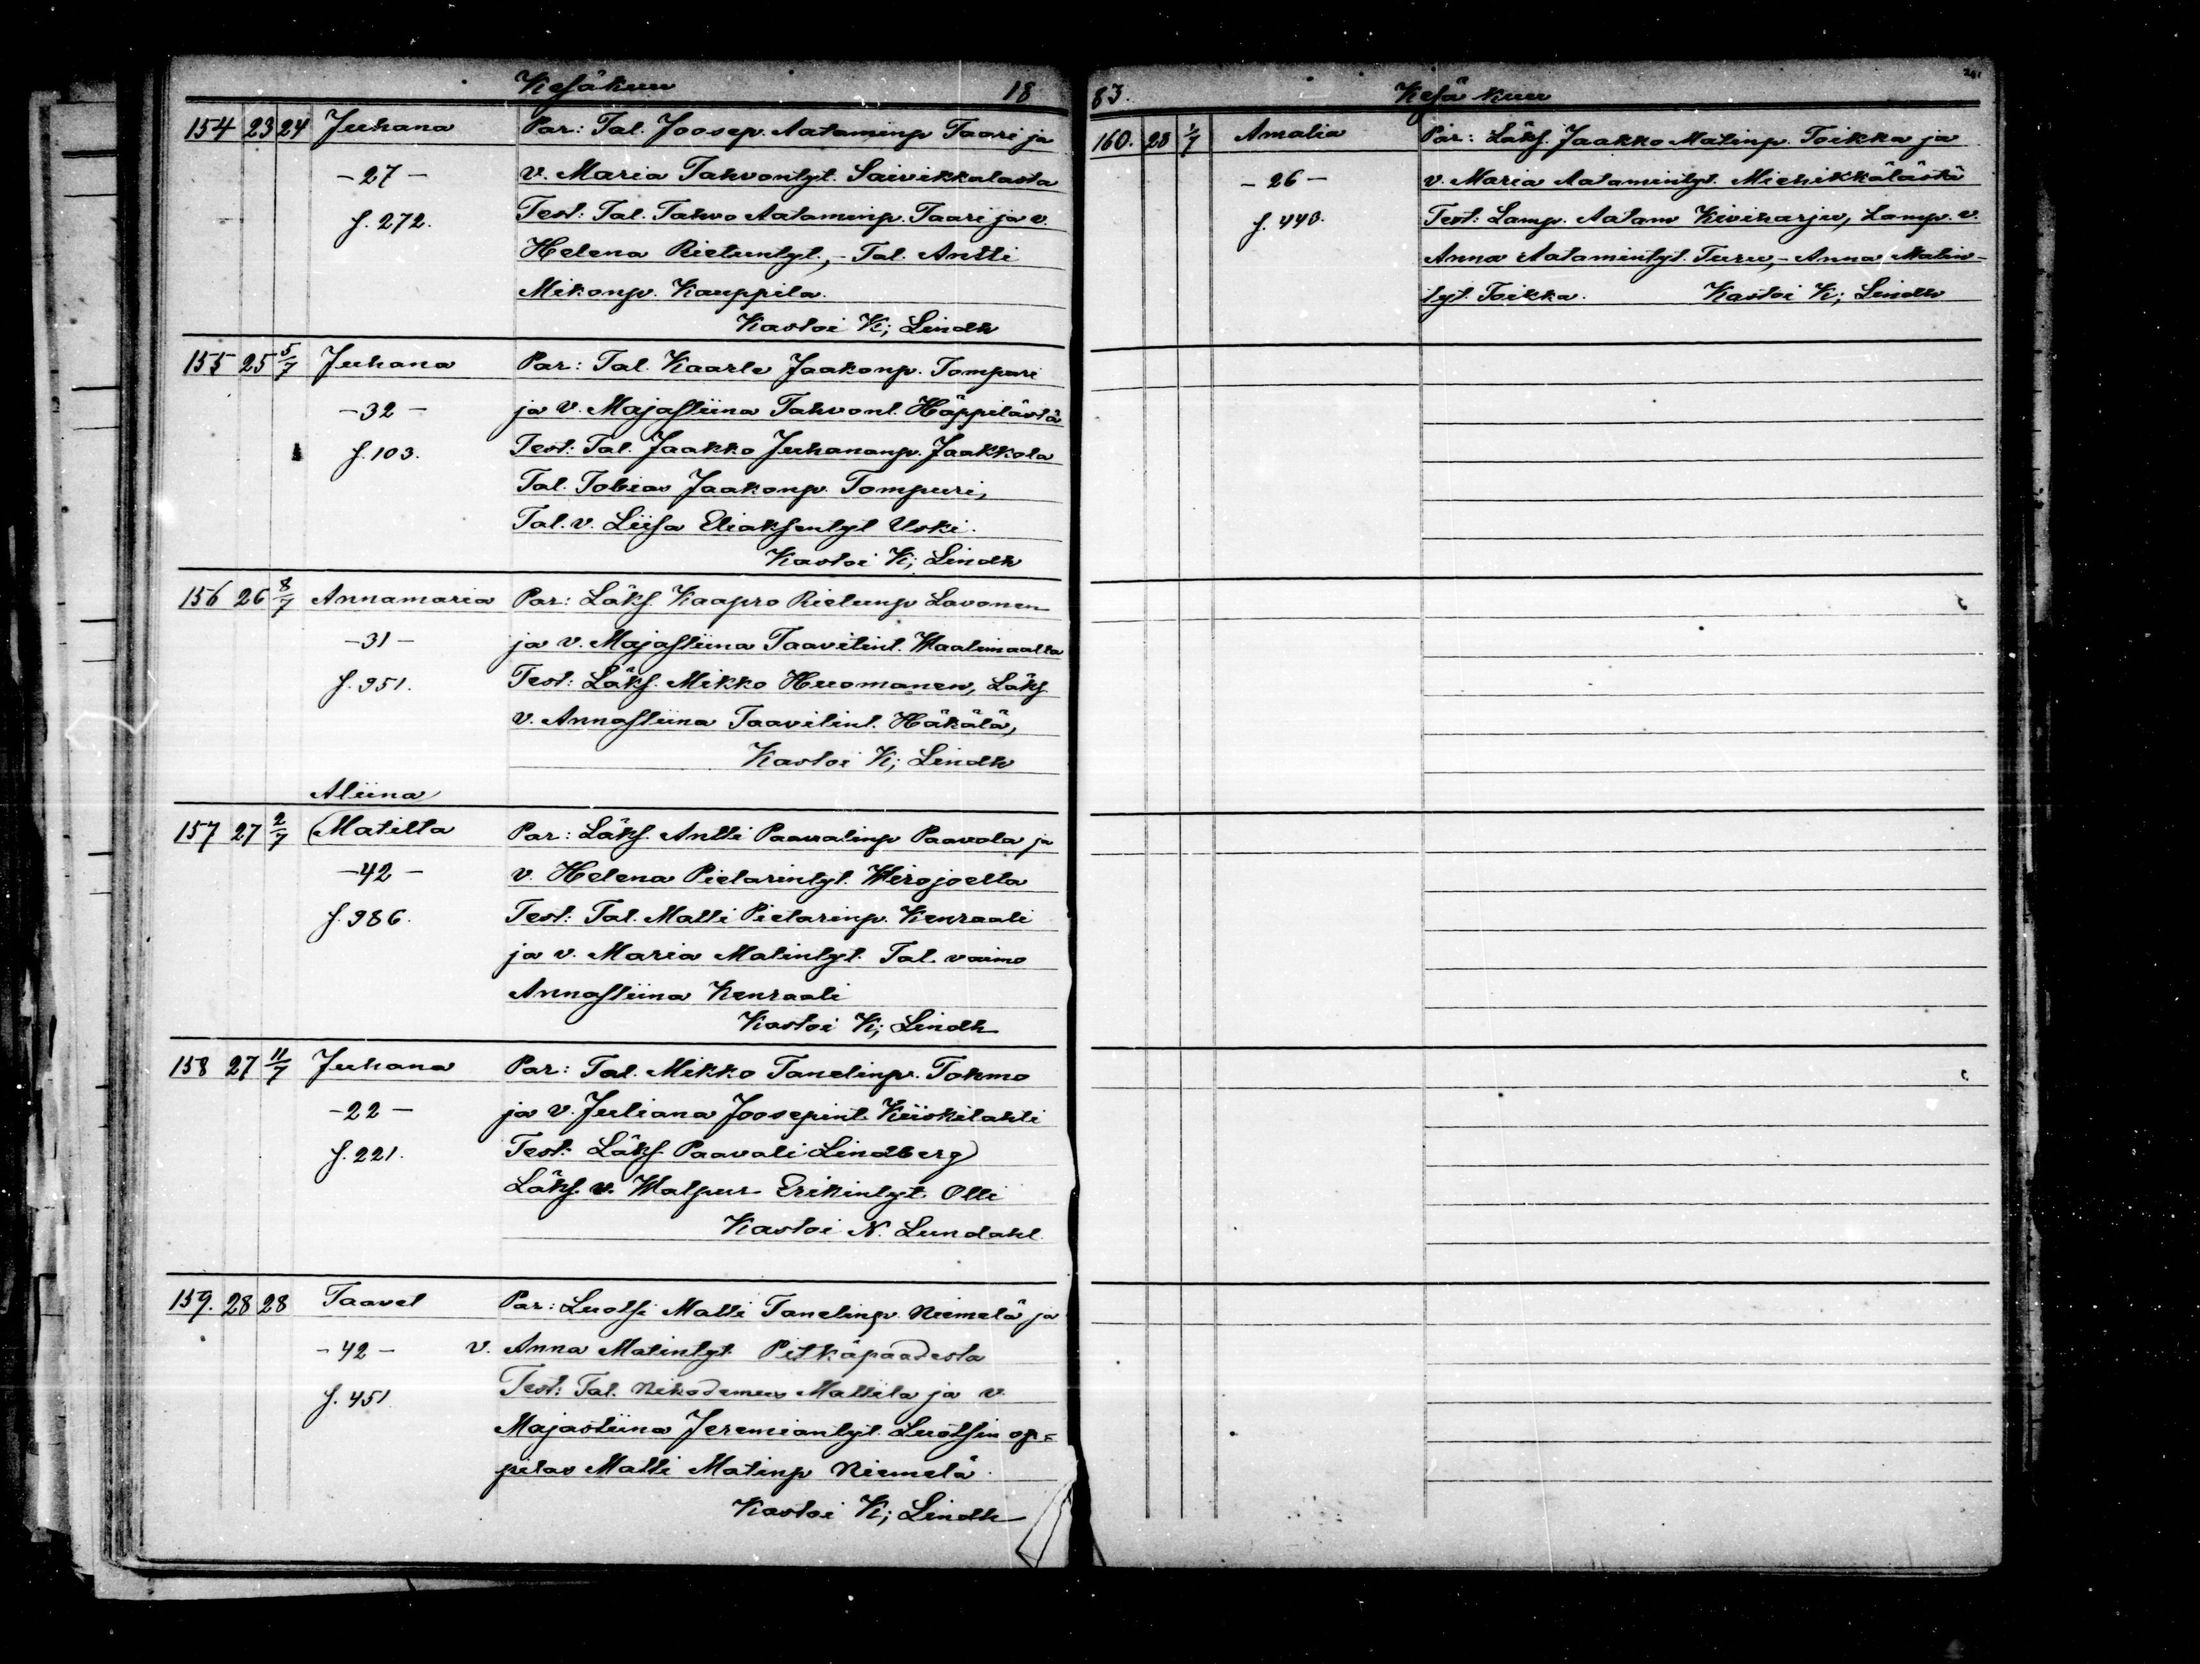 Kesäkuu 18
154 23 24 Juhana Par: Tal. Joosep. Aataminp Taari ja
-27- v. Maria Tahvontyt. Saivikkalasta
f. 272. Test: Tal. Tahvo Aataminp. Taari ja v.
Helena Rietuntyt., - Tal. Antti
Mikonp. Kauppila.
Kastoi K; Lindh
155 25 5/7 Juhana Par: Tal. Kaarle Jaakonp. Tompuri
-32- ja v. Majastiina Tahvont. Häppilästä
f. 103. Test: Tal. Jaakko Juhananp. Jaakkola
Tal. Tobias Jaakonp. Tompuri,
Tal. v. Liisa Eliaksentyt Uski.
Kastoi K; Lindh
156 26 8/7 Annamaria Par: Läks. Kaapro Rietunp Lavonen
-31- ja v. Majastiina Taavetint. Waalimaalta
f. 951. Test: Läks. Mikko Huomanen, Läks
v. Annastiina Taavitint. Häkälä,
Kastoi K; Lindh
Aliina
157 27 2/7 (Matilta Par: Läks. Antti Paavalinp Paavola ja
-42- v. Helena Pietarintyt. Wirojoelta
f. 986. Test: Tal. Matti Pietarinp. Kenraali
ja v. Maria Matintyt. Tal. vaimo
Annastiina Kenraali
Kastoi K; Lindh
158 27 11/7 Juhana Par: Tal. Mikko Tanelinp. Tohmo
-22- ja v. Juliana Joosepint. Kiiskilahti
f. 221. Test: Läks Paavali Lindberg
Läks. v. Walpur Erikintyt. Olli
Kastoi N. Lundahl.
159. 28 28 Taavet Par: Luotsi Matti Tanelinp. Niemelä ja
-42- v. Anna Matintyt. Pitkäpaadesta
f. 451 Test: Tal. Nikodemus Mattila ja v.
Majastiina Jeremiantyt. Luotsin op=
pilas Matti Matinp Niemelä.
Kastoi K; Lindh
83. Kesäkuu 241
160. 28 1/7 Amalia Par: Läks. Jaakko Matinp. Toikka ja
-26- v. Maria Aatamintyt. Miehikkälästä
f. 440. Test: Lamp. Aatam Kiviharju, Lamp. v.
Anna Aatamintyt. Turu, - Anna Matin-
tyt. Toikka. Kastoi K; Lindh